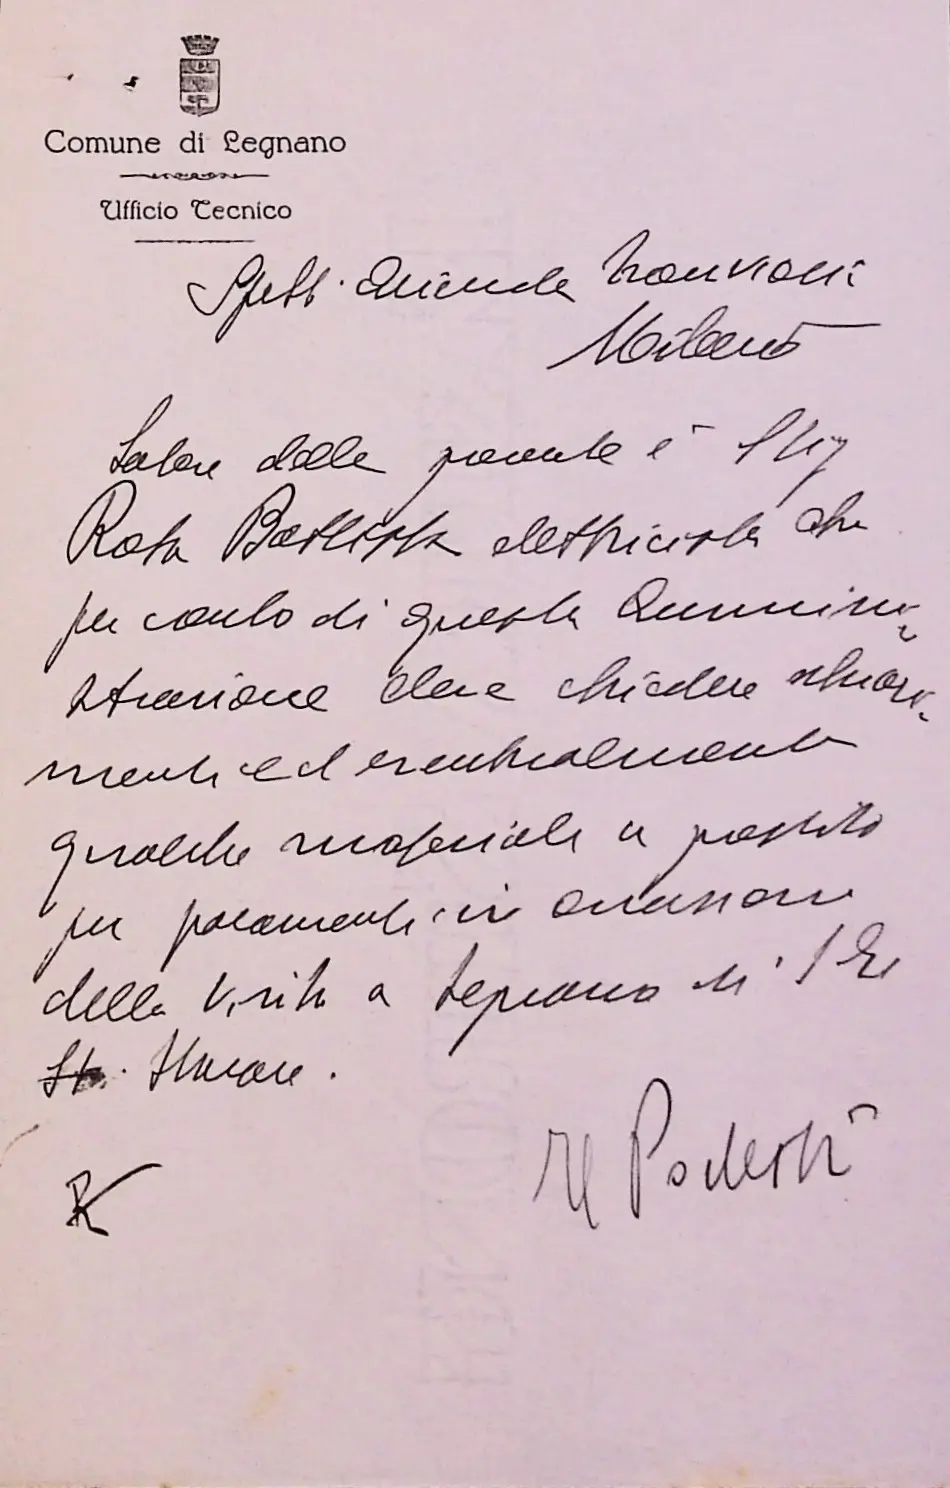 Comune di Legnano
Ufficio Tecnico
Spett. Azienda Tranviaria
Milano
Latore della presente è il Sig
Rota Battista elettricista che
per conto di questa Ammini-
strazione deve chiedere schiari-
menti ed eventualmente
qualche materiale a prestito
per paramenti in occasione
della visita a Legnano di S. E.
Starace.
Il Podestà